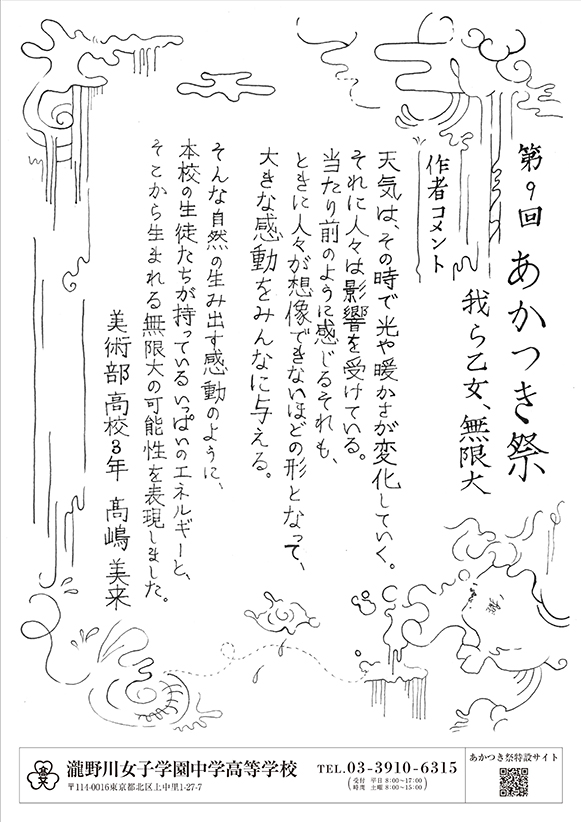 第9回 あかつき祭
我ら乙女、無限大
作者コメント
天気は、その時で光や暖かさが変化していく。
それに人々は影響を受けている。
当たり前のように感じるそれも、
ときに人々が想像できないほどの形となって、
大きな感動をみんなに与える。
そんな自然の生み出す感動のように、
本校の生徒たちが持っているいっぱいのエネルギーと、
そこから生まれる無限大の可能性を表現しました。
美術部 高校3年 髙嶋 美来
瀧野川女子学園中学高等学校
〒114-0016東京都北区上中里1-27-7
TEL.03-3910-6315
(受付時間 平日 8:00〜17:00 土曜 8:00〜15:00)
あかつき祭特設サイト